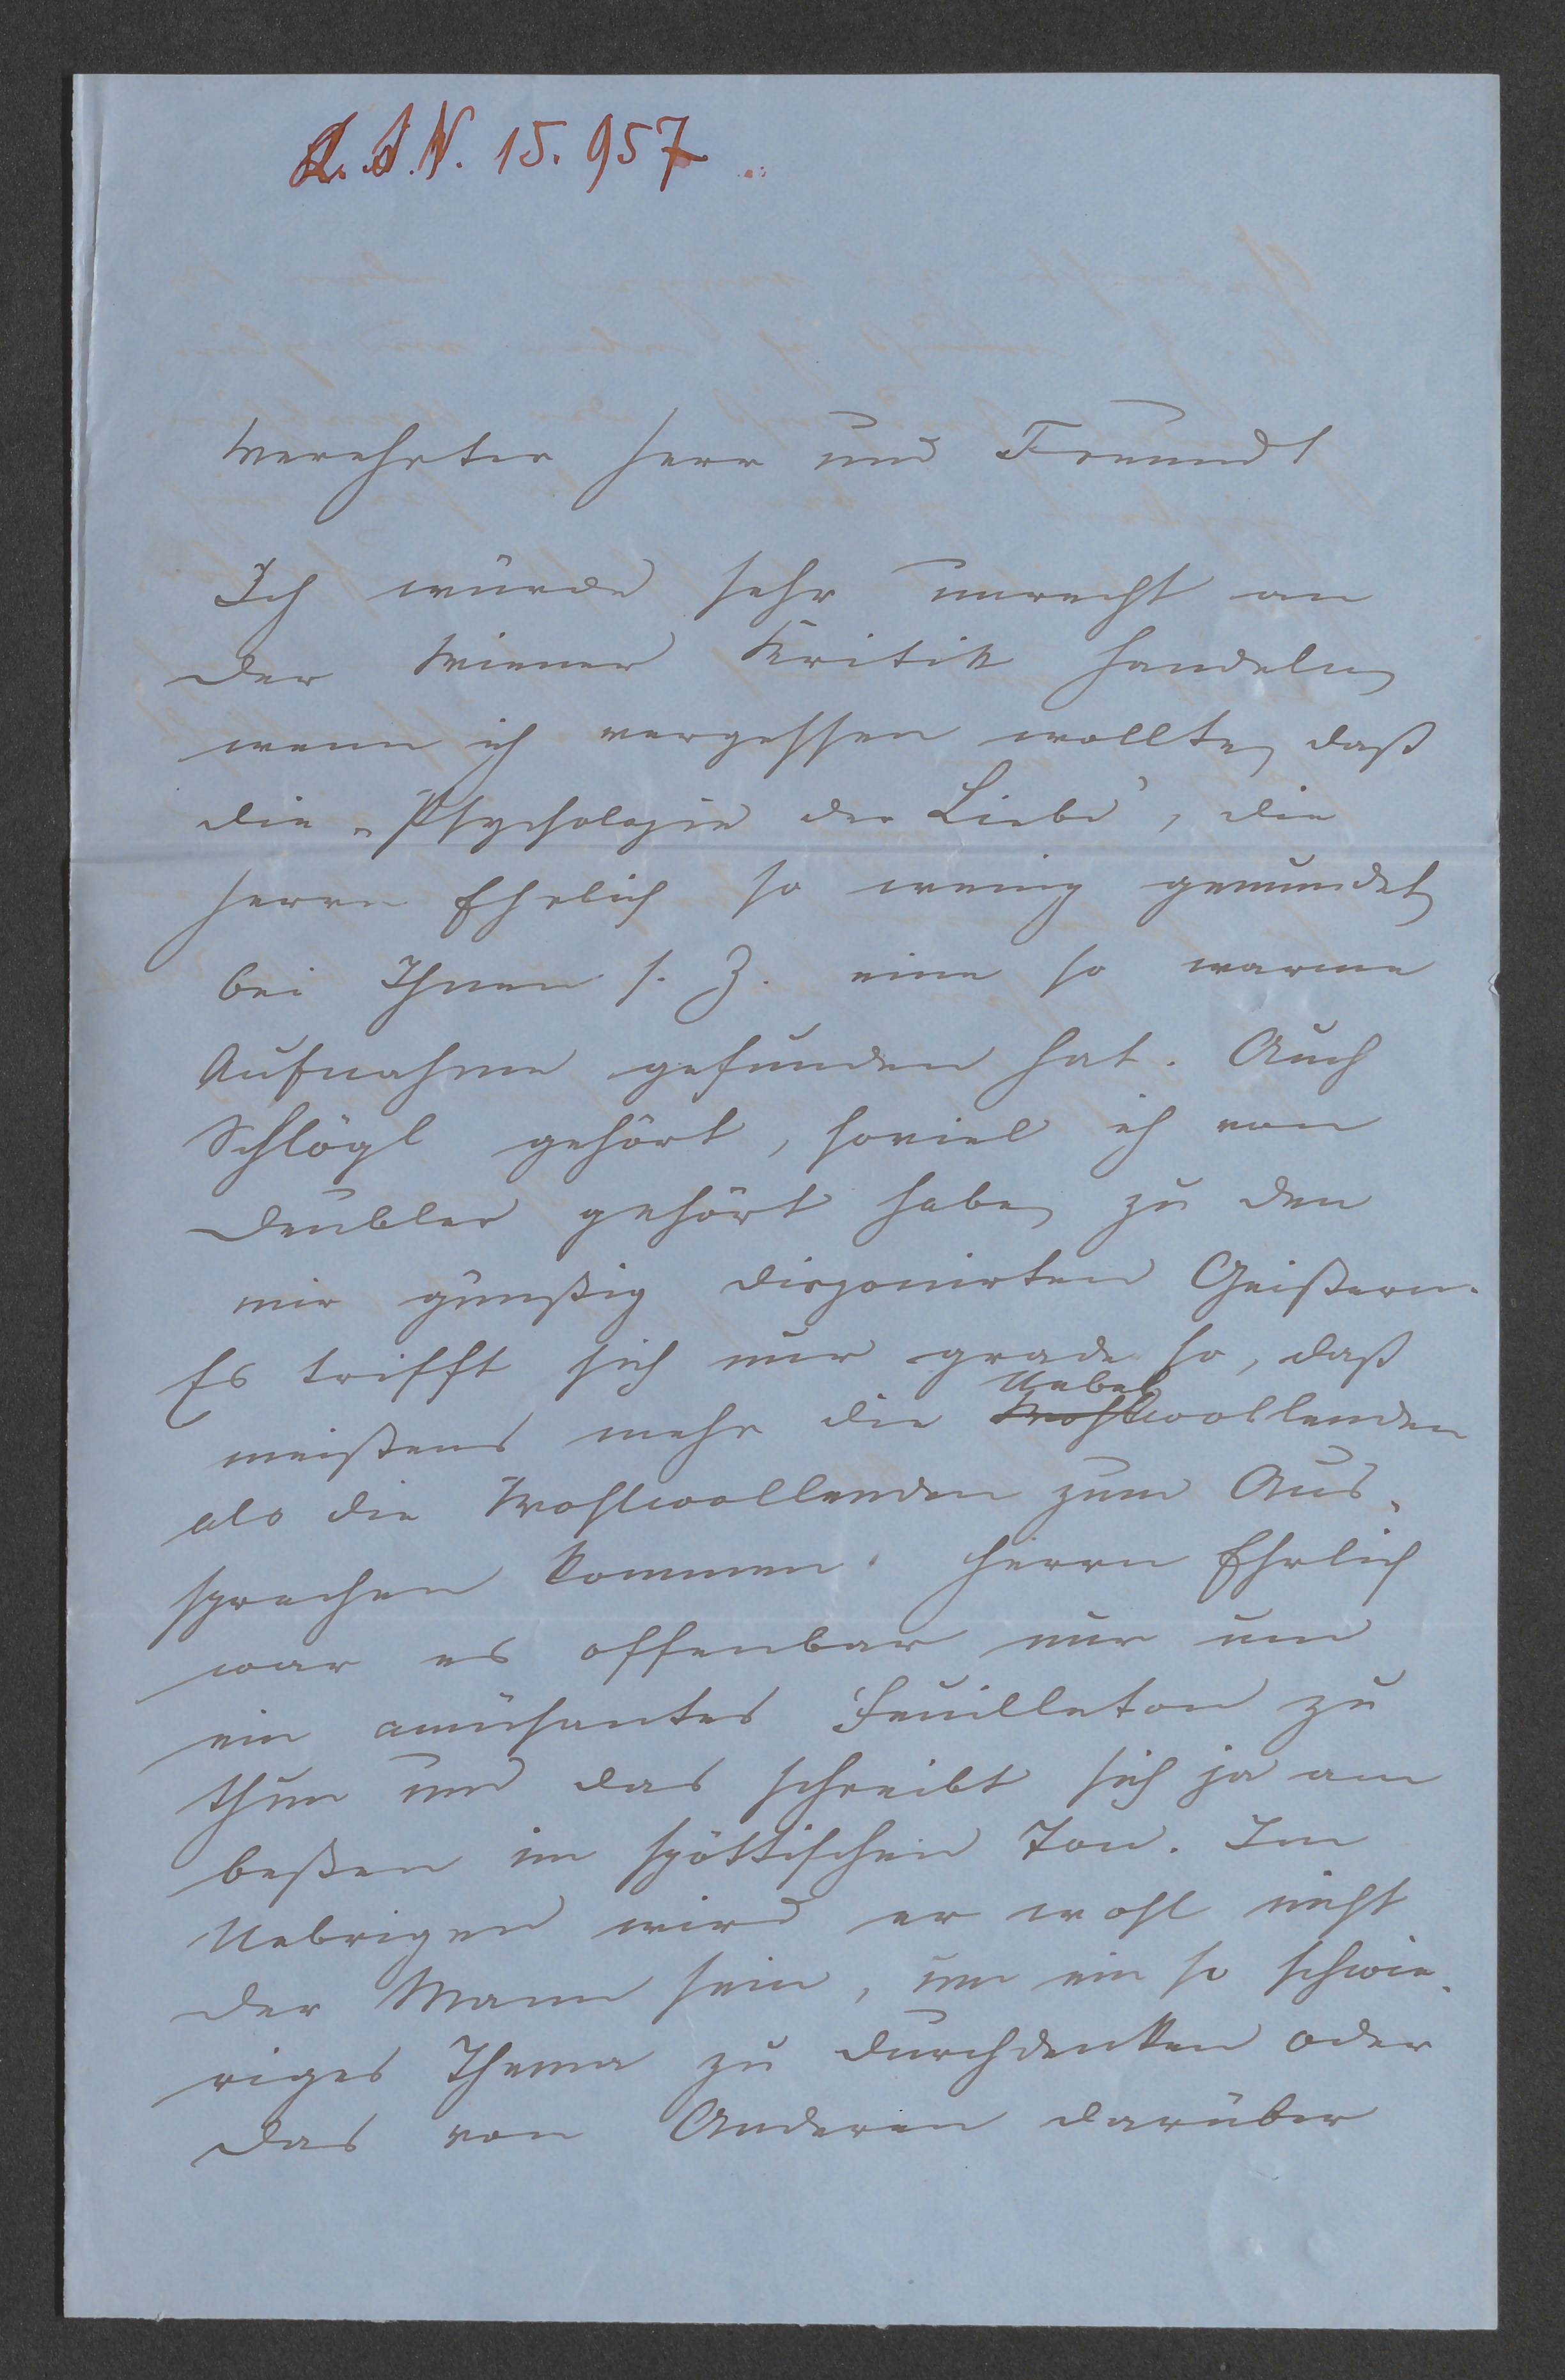 L. I. N. 15.957
Verehrter Herr und Freund!
Ich würde sehr unrecht an
der Wiener Kritik handeln,
wenn ich vergessen wollte, daß
die „Psychologie der Liebe“, die
Herrn Ehrlich so wenig gemundet,
bei Ihnen s. Z. eine so warme
Aufnahme gefunden hat. Auch
Schlögl gehört, soviel ich von
Deubler gehört habe, zu den
mir günstig disponirten Geistern.
Es trifft sich nur grade so, daß
Uebel
meistens mehr die Wohlwollenden
als die Wohlwollenden zum Aus-
sprechen kommen. Herrn Ehrlich
war es offenbar nur um
ein amüsantes Feuilleton zu
thun und das schreibt sich ja am
besten im spöttischen Ton. Im
Uebrigen wird er wohl nicht
der Mann sein, um ein so schwie-
riges Thema zu durchdenken oder
das von Anderen darüber